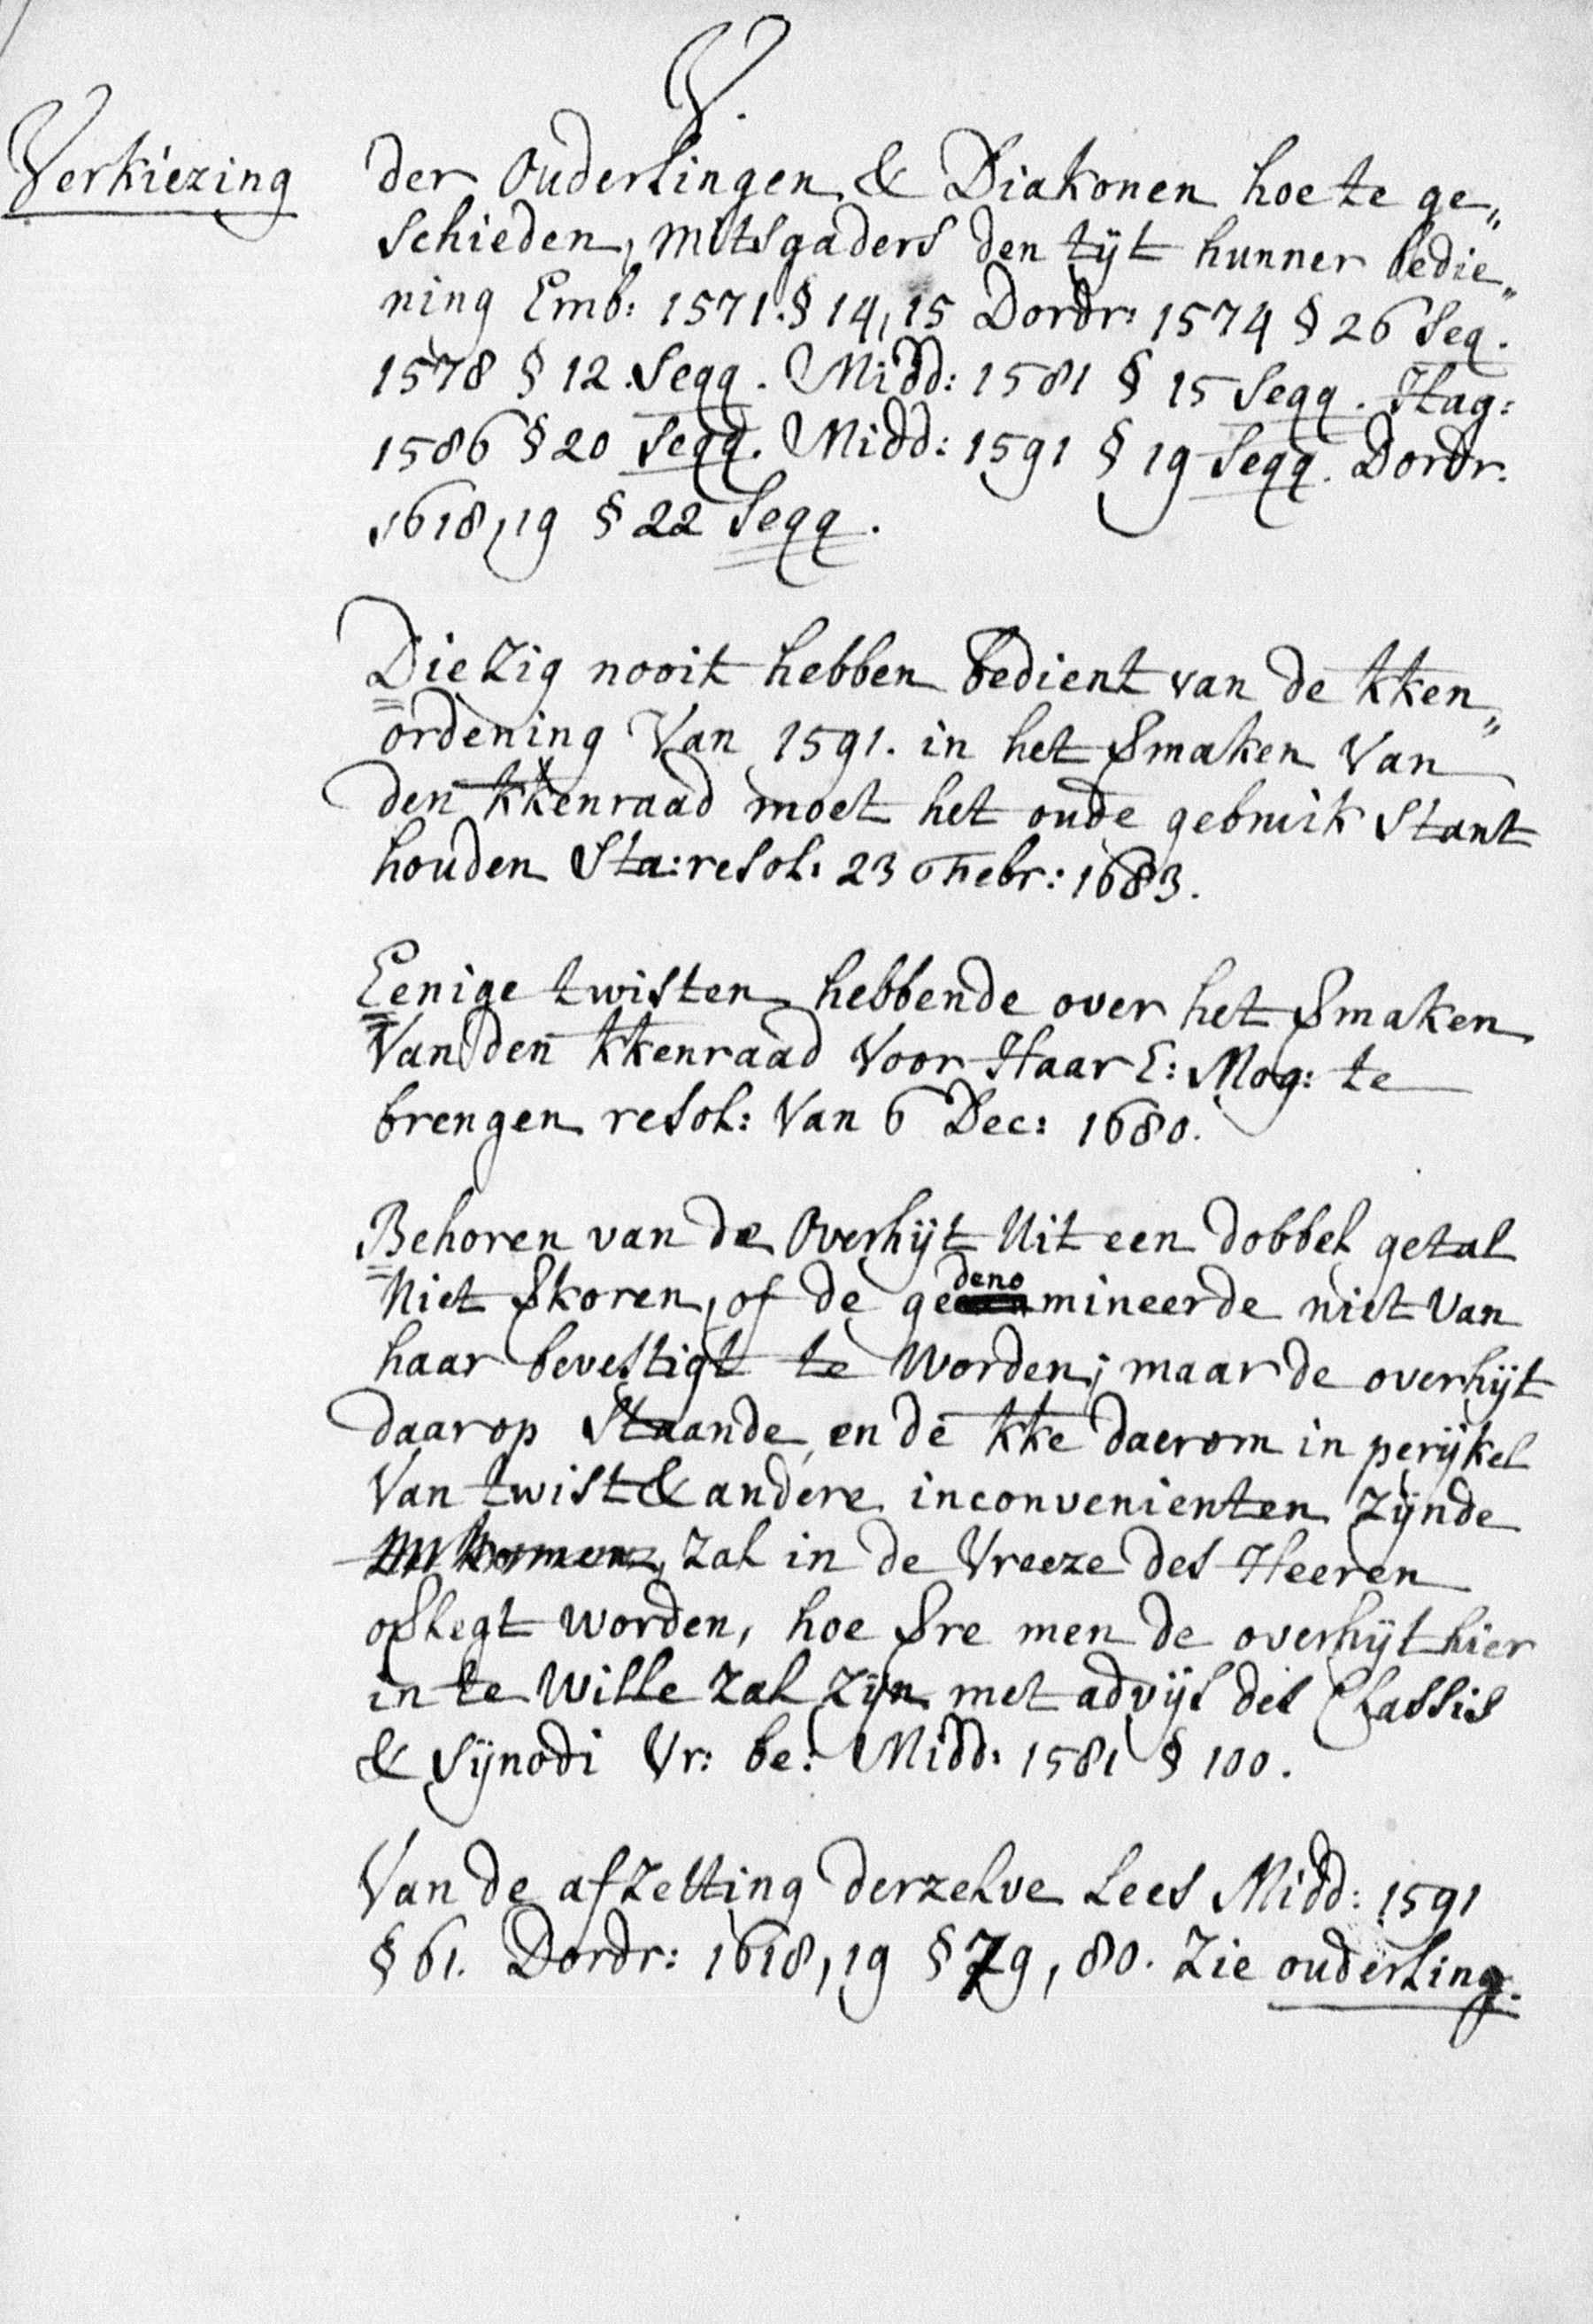 V.
Verkiezing der Ouderlingen & Diakonen hoe te ge„
schieden, mitsgaders den tijt hunner bedie„
ning Emb: 1571. § 14, 15 Dordr: 1574 § 26 seq.
1578 § 12. seqq. Midd: 1581 § 15 seqq. Hag:
1586 § 20 seqq. Midd: 1591 § 19 seqq. Dordr.
1618, 19 § 22 seqq.
Die zig nooit hebben bedient van de kken„
ordening van 1591. in het $maken van
den kkenraad moet het oude gebruik stant
houden Sta: resol. 23 Febr: 1683.
Eenige twisten hebbende over het $maken
van den kkenraad voor Haar E: Mog: te
brengen resol: van 6 Dec: 1680.
Behoren van de overhijt uit een dobbel getal
niet $koren, of de gedenomineerde niet van
haar bevestigt te worden; maar de overhijt
daarop staande, en de kke daerom in perijkel
van twist & andere inconvenienten zijnde
zal in de vreeze des Heeren
o$legt worden, hoe $re men de overhijt hier
in te wille zal zijn met advijs des Classis
& Sijnodi Vr: be: Midd: 1581 § 100.
Van de afzetting derzelve lees Midd: 1591
§ 61. Dordr: 1618, 19 § 79, 80. Zie ouderling.